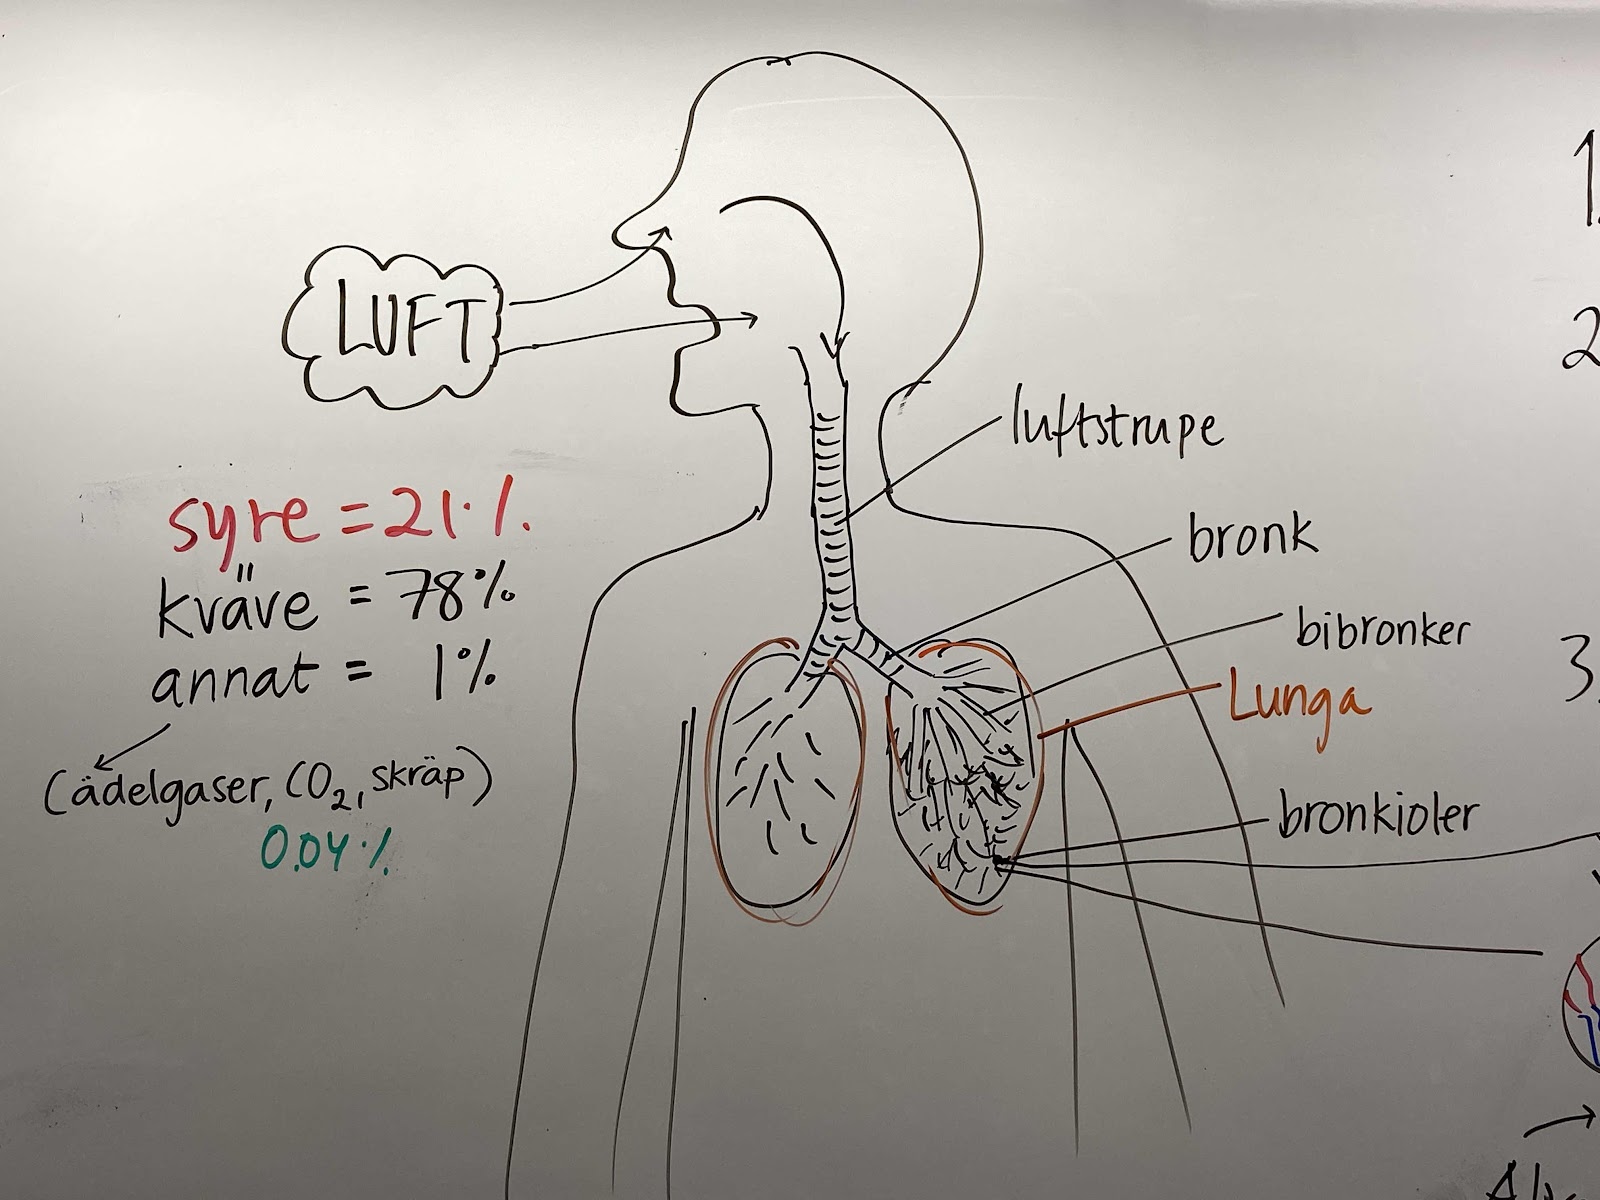 LUFT
syre = 21%
kväve = 78%
annat = 1%
(ädelgaser, CO2, skräp)
0.04%
luftstrupe
bronk
bibronker
Lunga
bronkioler
1.
2
3.